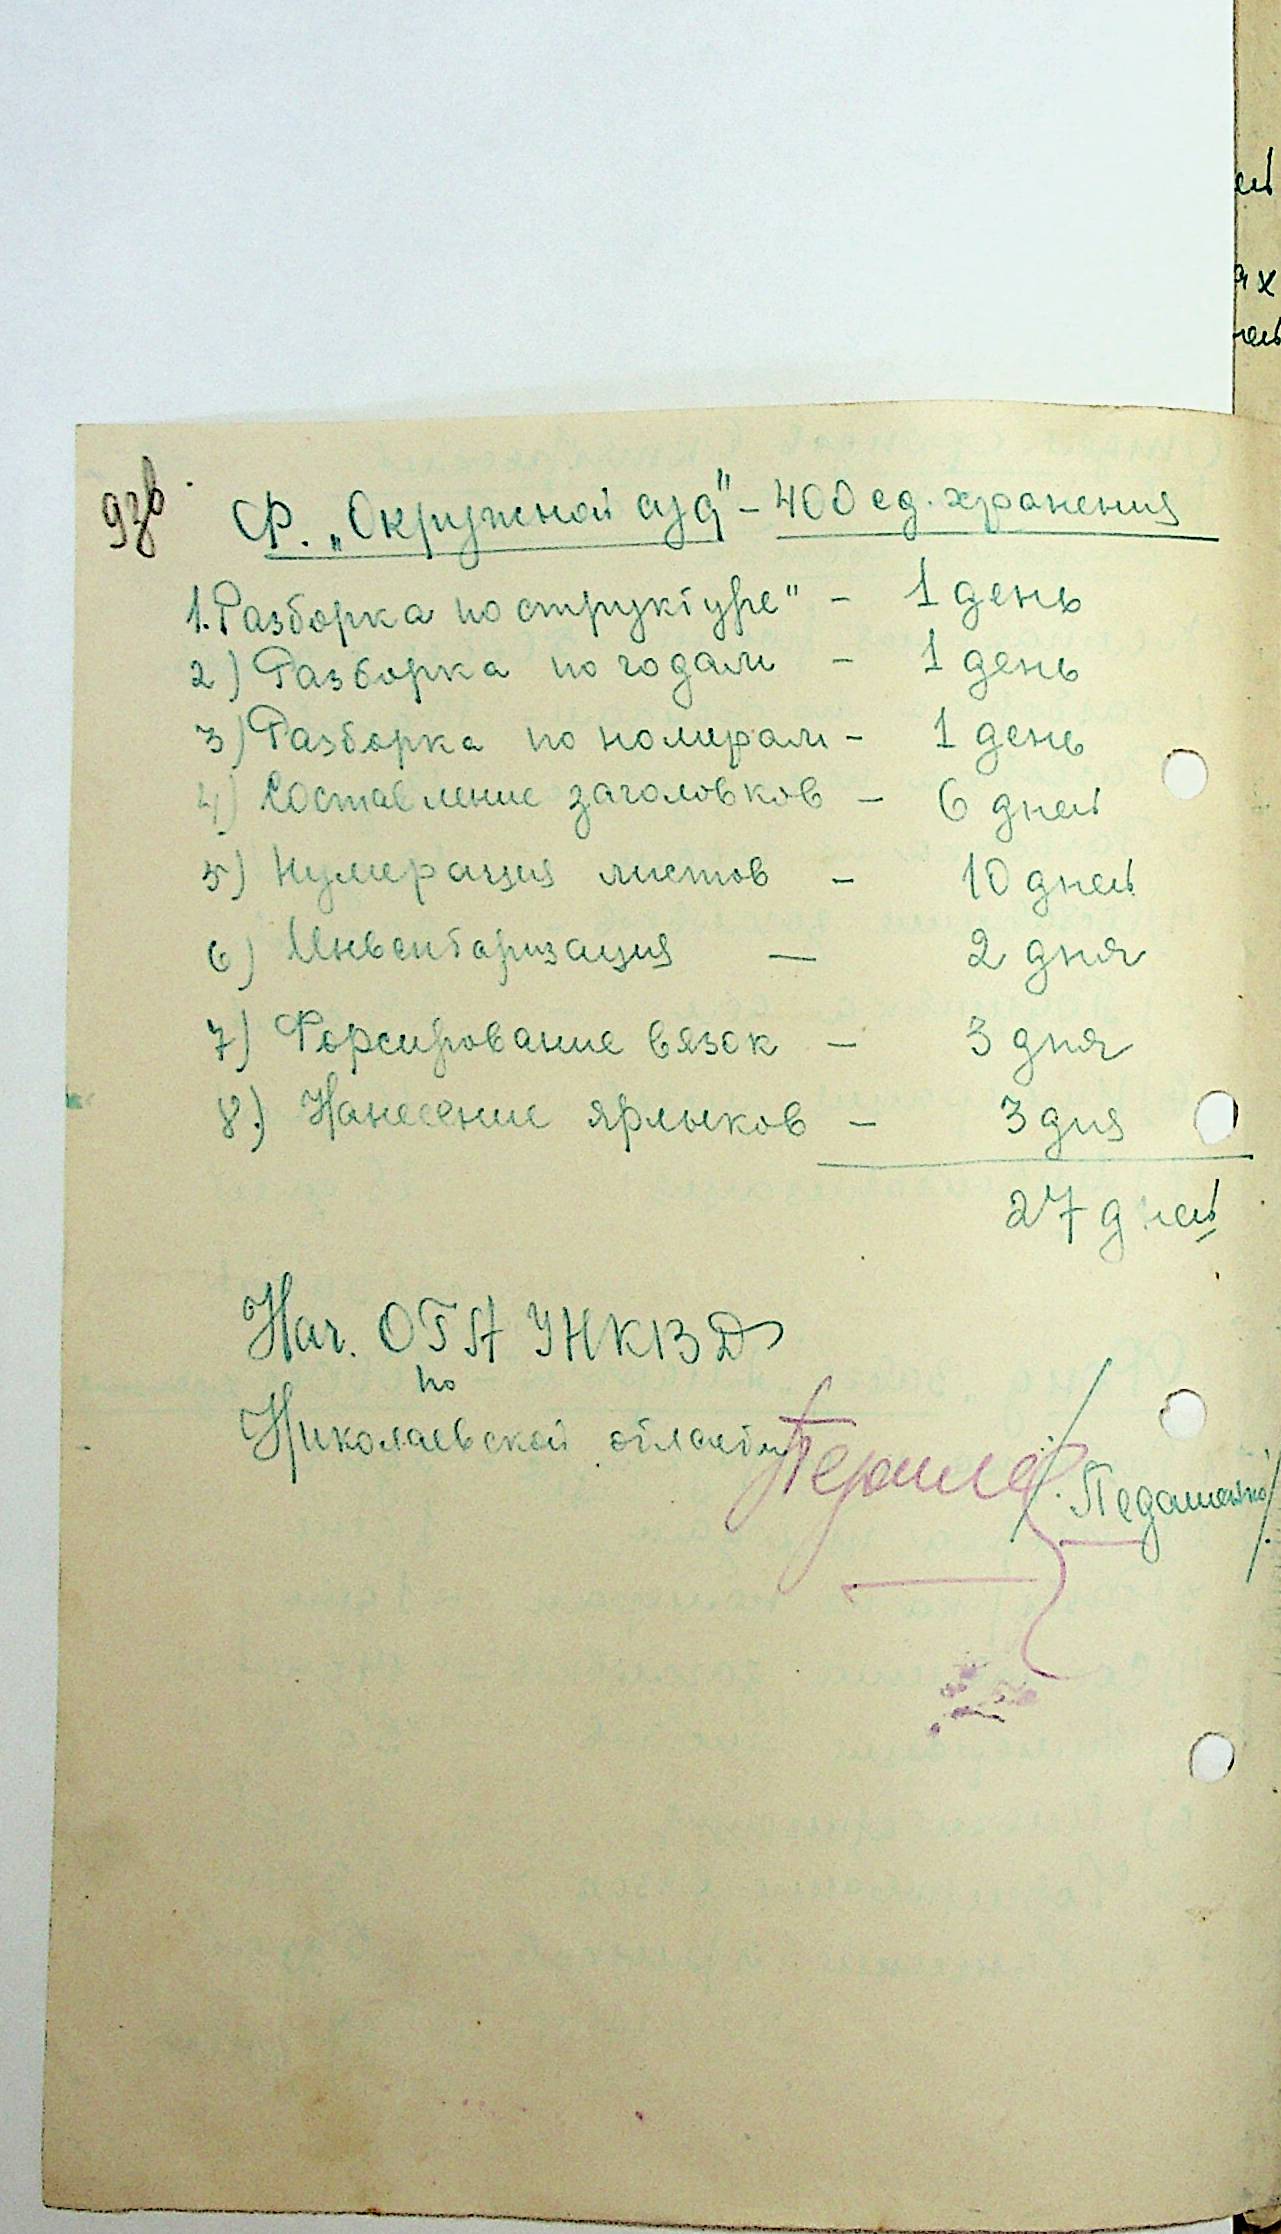 93в.
Ф. „Окружной суд" – 400 ед. хранения
1. Разборка по структуре" – 1 день
2) Разборка по годам – 1 день
3) Разборка по номерам – 1 день
4) Составление заголовков – 6 дней
5) Нумерация листов – 10 дней
6) Инвентаризация – 2 дня
7) Форсирование вязок – 3 дня
8.) Нанесение ярлыков – 3 дня
27 дней
Нач. ОГА УНКВД
по
Николаевской области
/Педашенко/.